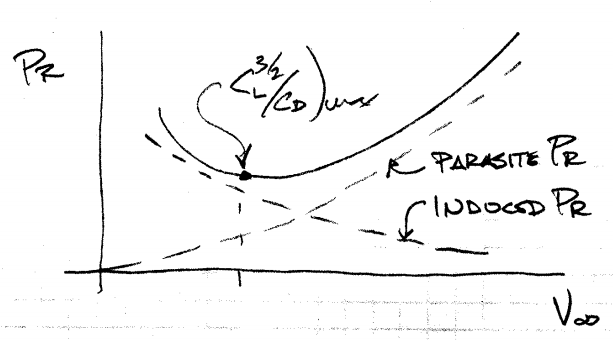 PR
CL^3/2/CD)max
PARASITE PR
INDUCED PR
V∞